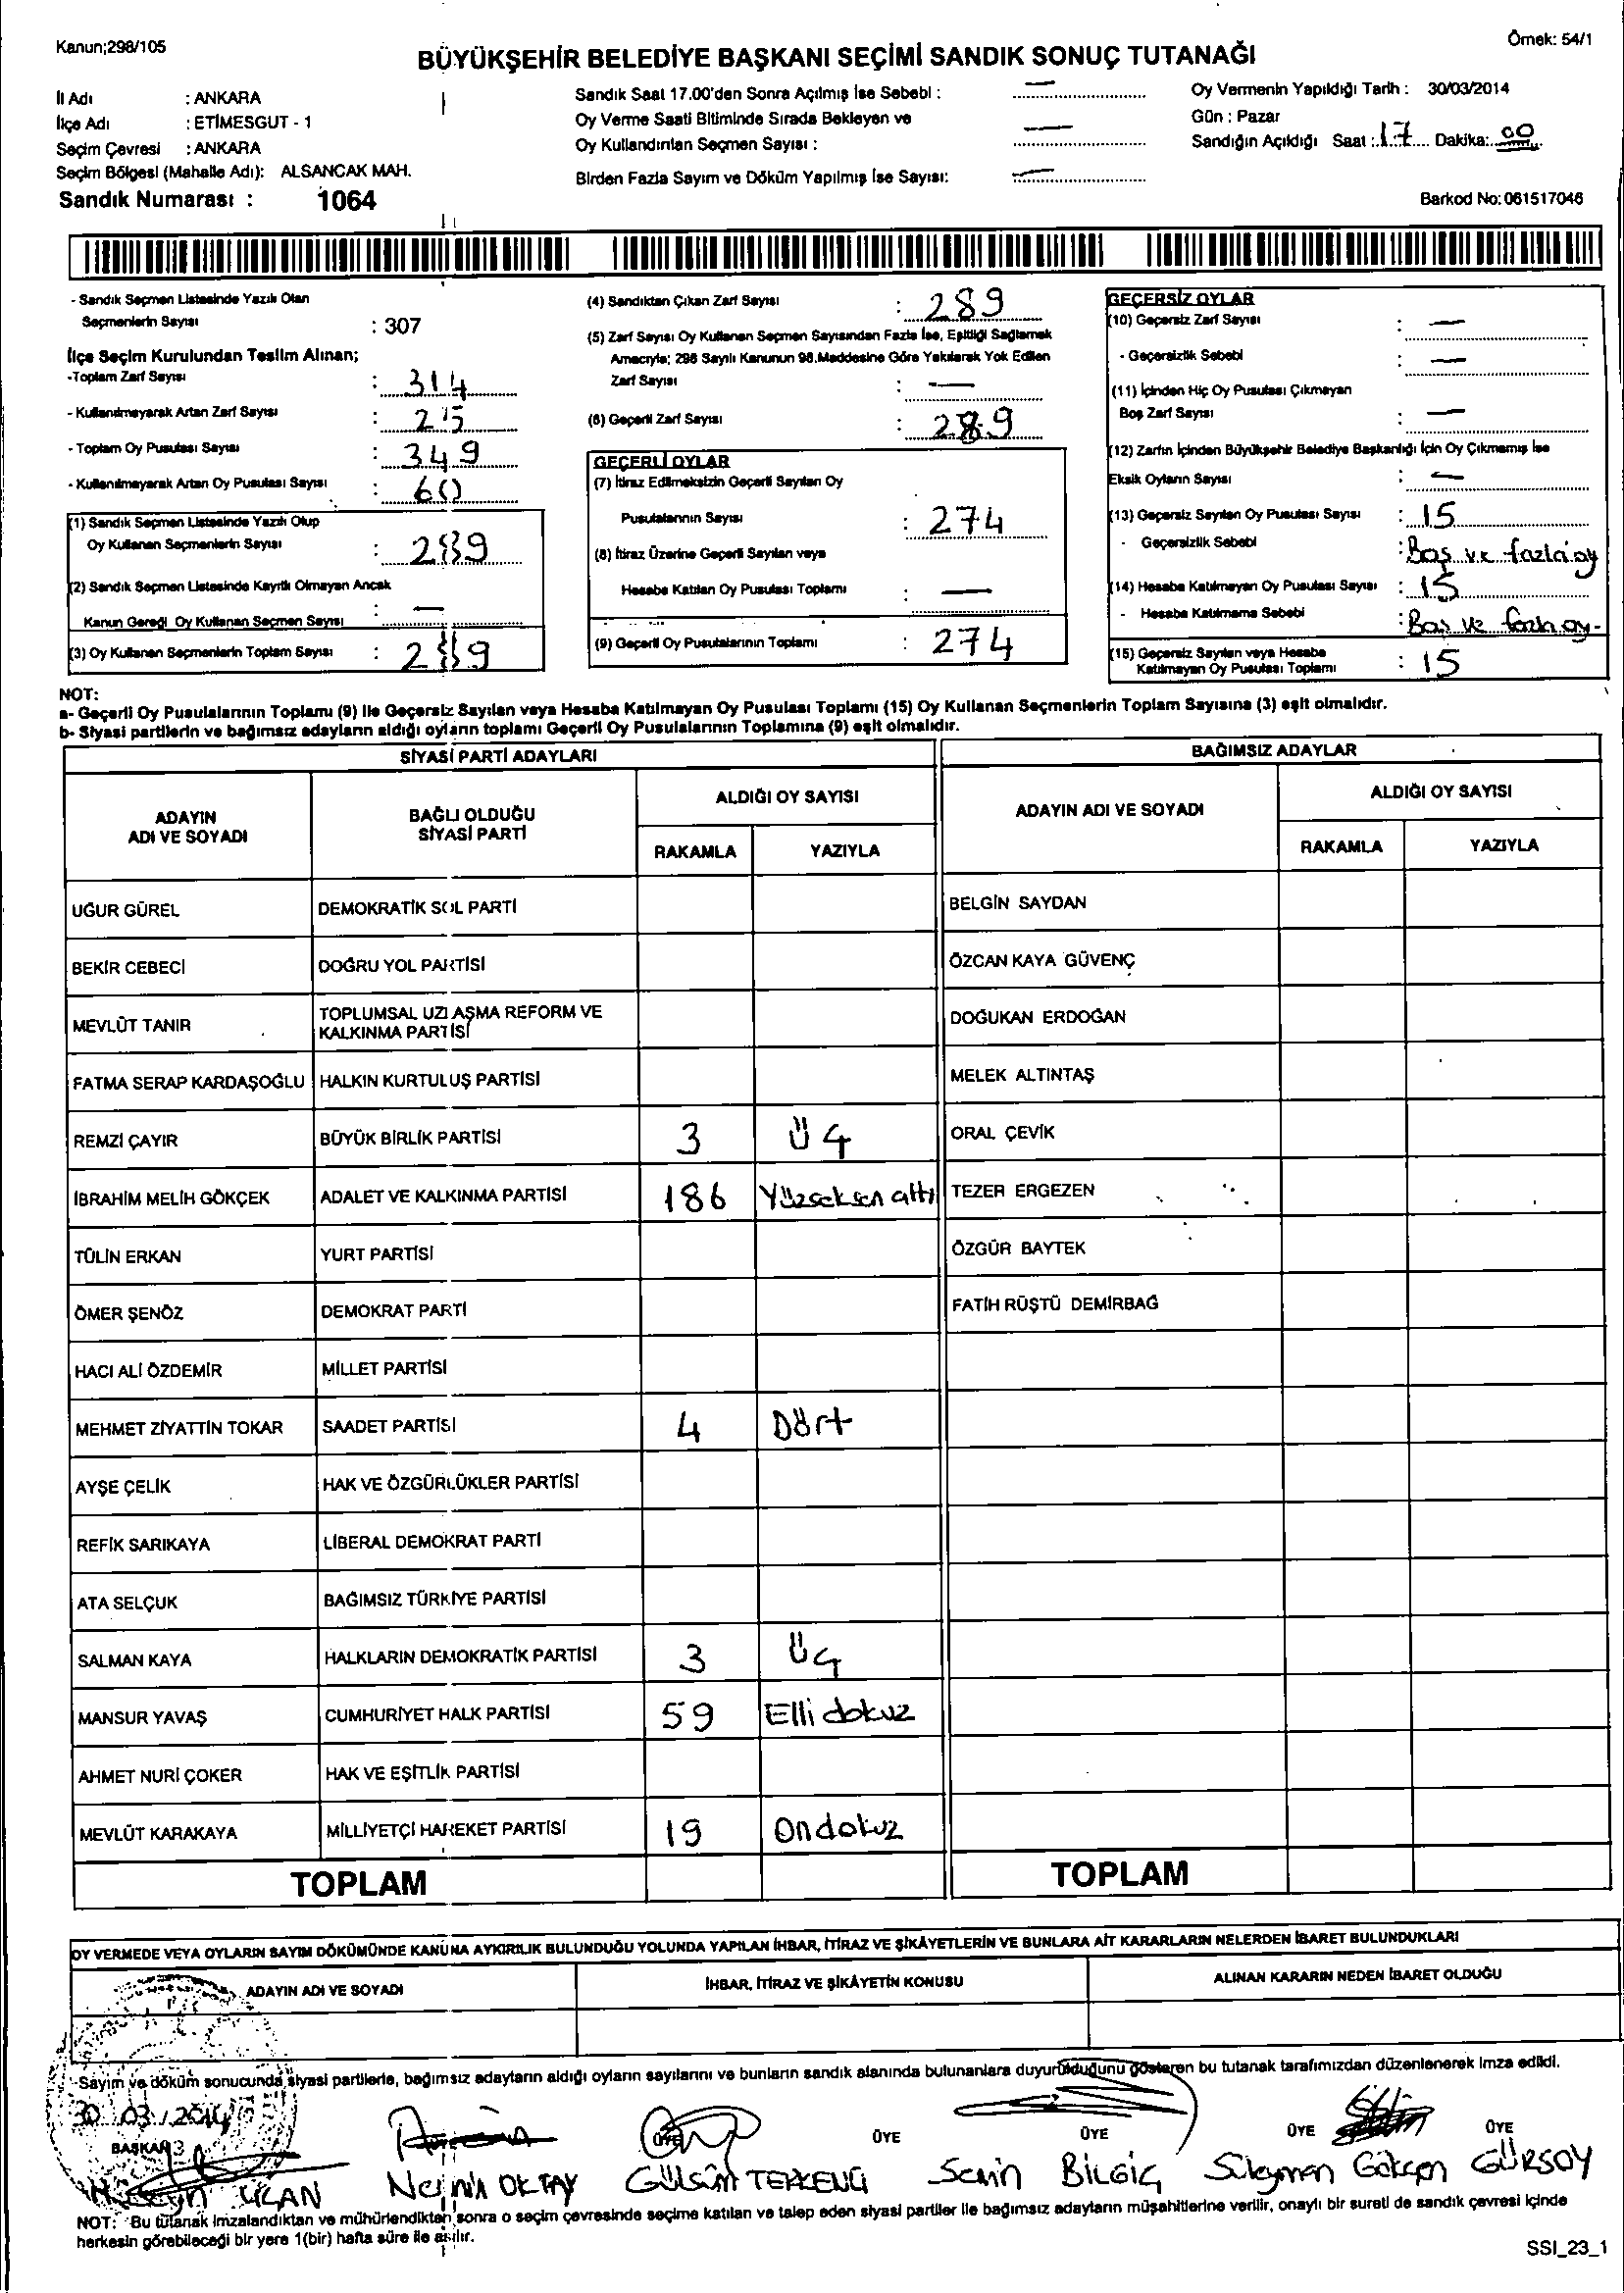 Kanun;298/105
Örnek: 54/1
BÜYÜKŞEHİR BELEDİYE BAŞKANI SEÇİMİ SANDIK SONUÇ TUTANAĞI
İl Adı : ANKARA
İlçe Adı : ETİMESGUT - 1
Seçim Çevresi : ANKARA
Seçim Bölgesi (Mahalle Adı): ALSANCAK MAH.
Sandık Numarası : 1064
Sandık Saat 17.00'den Sonra Açılmış İse Sebebi : —
Oy Verme Saati Bitiminde Sırada Bekleyen ve
Oy Kullandırılan Seçmen Sayısı : —
Birden Fazla Sayım ve Döküm Yapılmış İse Sayısı: —
Oy Vermenin Yapıldığı Tarih : 30/03/2014
Gün : Pazar
Sandığın Açıldığı Saat : 17 Dakika: 00
Barkod No: 061517046
- Sandık Seçmen Listesinde Yazılı Olan
Seçmenlerin Sayısı : 307
İlçe Seçim Kurulundan Teslim Alınan;
-Toplam Zarf Sayısı : 314
- Kullanılmayarak Artan Zarf Sayısı : 25
- Toplam Oy Pusulası Sayısı : 349
- Kullanılmayarak Artan Oy Pusulası Sayısı : 60
(1) Sandık Seçmen Listesinde Yazılı Olup
Oy Kullanan Seçmenlerin Sayısı : 289
(2) Sandık Seçmen Listesinde Kayıtlı Olmayan Ancak
Kanun Gereği Oy Kullanan Seçmen Sayısı : —
(3) Oy Kullanan Seçmenlerin Toplam Sayısı : 289
(4) Sandıktan Çıkan Zarf Sayısı : 289
(5) Zarf Sayısı Oy Kullanan Seçmen Sayısından Fazla İse, Eşitliği Sağlamak
Amacıyla; 298 Sayılı Kanunun 98.Maddesine Göre Yakılarak Yok Edilen
Zarf Sayısı : —
(6) Geçerli Zarf Sayısı : 289
GEÇERLİ OYLAR
(7) İtiraz Edilmeksizin Geçerli Sayılan Oy
Pusulalarının Sayısı : 274
(8) İtiraz Üzerine Geçerli Sayılan veya
Hesaba Katılan Oy Pusulası Toplamı : —
(9) Geçerli Oy Pusulalarının Toplamı : 274
GEÇERSİZ OYLAR
(10) Geçersiz Zarf Sayısı : —
- Geçersizlik Sebebi : —
(11) İçinden Hiç Oy Pusulası Çıkmayan
Boş Zarf Sayısı : —
(12) Zarfın İçinden Büyükşehir Belediye Başkanlığı İçin Oy Çıkmamış İse
Eksik Oyların Sayısı : —
(13) Geçersiz Sayılan Oy Pusulası Sayısı : 15
- Geçersizlik Sebebi : Boş ve fazla oy
(14) Hesaba Katılmayan Oy Pusulası Sayısı : 15
- Hesaba Katılmama Sebebi : Boş ve fazla oy-
(15) Geçersiz Sayılan veya Hesaba
Katılmayan Oy Pusulası Toplamı : 15
NOT:
a- Geçerli Oy Pusulalarının Toplamı (9) ile Geçersiz Sayılan veya Hesaba Katılmayan Oy Pusulası Toplamı (15) Oy Kullanan Seçmenlerin Toplam Sayısına (3) eşit olmalıdır.
b- Siyasi partilerin ve bağımsız adayların aldığı oyların toplamı Geçerli Oy Pusulalarının Toplamına (9) eşit olmalıdır.
SİYASİ PARTİ ADAYLARI
BAĞIMSIZ ADAYLAR
ADAYIN ADI VE SOYADI
BAĞLI OLDUĞU SİYASİ PARTİ
ALDIĞI OY SAYISI
RAKAMLA YAZIYLA
ADAYIN ADI VE SOYADI
ALDIĞI OY SAYISI
RAKAMLA YAZIYLA
UĞUR GÜREL DEMOKRATİK SOL PARTİ BELGİN SAYDAN
BEKİR CEBECİ DOĞRU YOL PARTİSİ ÖZCAN KAYA GÜVENÇ
MEVLÜT TANIR TOPLUMSAL UZLAŞMA REFORM VE KALKINMA PARTİSİ DOĞUKAN ERDOĞAN
FATMA SERAP KARDAŞOĞLU HALKIN KURTULUŞ PARTİSİ MELEK ALTINTAŞ
REMZİ ÇAYIR BÜYÜK BİRLİK PARTİSİ 3 Üç ORAL ÇEVİK
İBRAHİM MELİH GÖKÇEK ADALET VE KALKINMA PARTİSİ 186 Yüzseksen altı TEZER ERGEZEN
TÜLİN ERKAN YURT PARTİSİ ÖZGÜR BAYTEK
ÖMER ŞENÖZ DEMOKRAT PARTİ FATİH RÜŞTÜ DEMİRBAĞ
HACI ALİ ÖZDEMİR MİLLET PARTİSİ
MEHMET ZİYATTİN TOKAR SAADET PARTİSİ 4 Dört
AYŞE ÇELİK HAK VE ÖZGÜRLÜKLER PARTİSİ
REFİK SARIKAYA LİBERAL DEMOKRAT PARTİ
ATA SELÇUK BAĞIMSIZ TÜRKİYE PARTİSİ
SALMAN KAYA HALKLARIN DEMOKRATİK PARTİSİ 3 Üç
MANSUR YAVAŞ CUMHURİYET HALK PARTİSİ 59 Elli dokuz
AHMET NURİ ÇOKER HAK VE EŞİTLİK PARTİSİ
MEVLÜT KARAKAYA MİLLİYETÇİ HAREKET PARTİSİ 19 Ondokuz
TOPLAM TOPLAM
OY VERMEDE VEYA OYLARIN SAYIM DÖKÜMÜNDE KANUNA AYKIRILIK BULUNDUĞU YOLUNDA YAPILAN İHBAR, İTİRAZ VE ŞİKÂYETLERİN VE BUNLARA AİT KARARLARIN NELERDEN İBARET BULUNDUKLARI
ADAYIN ADI VE SOYADI İHBAR, İTİRAZ VE ŞİKÂYETİN KONUSU ALINAN KARARIN NEDEN İBARET OLDUĞU
Sayım ve döküm sonucunda siyasi partilerle, bağımsız adayların aldığı oyların sayılarını ve bunların sandık alanında bulunanlara duyurulduğunu gösteren bu tutanak tarafımızdan düzenlenerek imza edildi.
30/03/2014
BAŞKAN ÜYE ÜYE ÜYE ÜYE ÜYE
UÇAN OKTAY GÜLSÜM BİLGİÇ Süleyman Gökçen GÜRSOY
NOT: Bu tutanak imzalandıktan ve mühürlendikten sonra o seçim çevresinde seçime katılan ve talep eden siyasi partiler ile bağımsız adayların müşahitlerine verilir, onaylı bir sureti de sandık çevresi içinde
herkesin görebileceği bir yere 1(bir) hafta süre ile asılır.
SSI_23_1